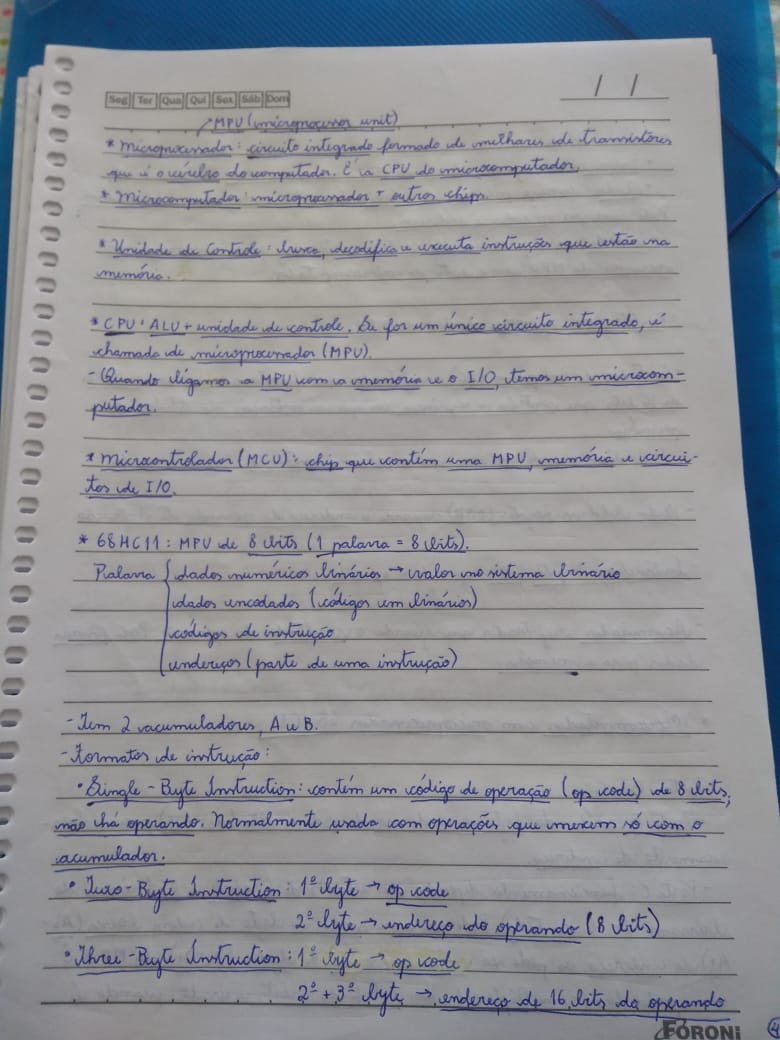 Seg Ter Qua Qui Sex Sáb Dom
/ /
MPU (microprocessor unit)
* Microprocessador: circuito integrado formado de milhares de transistores
que é o cérebro do computador. É a CPU do microcomputador.
* Microcomputador: microprocessador + outros chips.
* Unidade de Controle: busca, decodifica e executa instruções que estão na
memória.
* CPU: ALU + unidade de controle. Se for um único circuito integrado, é
chamado de microprocessador (MPU).
- Quando ligamos a MPU com a memória e o I/O, temos um microcom-
putador.
* Microcontrolador (MCU): chip que contém uma MPU, memória e circui-
tos de I/O.
* 68HC11: MPU de 8 bits (1 palavra = 8 bits).
Palavra { dados numéricos binários → valor no sistema binário
dados encodados (códigos em binários)
códigos de instrução
endereços (parte de uma instrução)
- Tem 2 acumuladores, A e B.
- Formatos de instrução:
• Single-Byte Instruction: contém um código de operação (op code) de 8 bits,
não há operando. Normalmente usada com operações que mexem só com o
acumulador.
• Two-Byte Instruction: 1º byte → op code
2º byte → endereço do operando (8 bits)
• Three-Byte Instruction: 1º byte → op code
2º + 3º byte → endereço de 16 bits do operando
FORONI